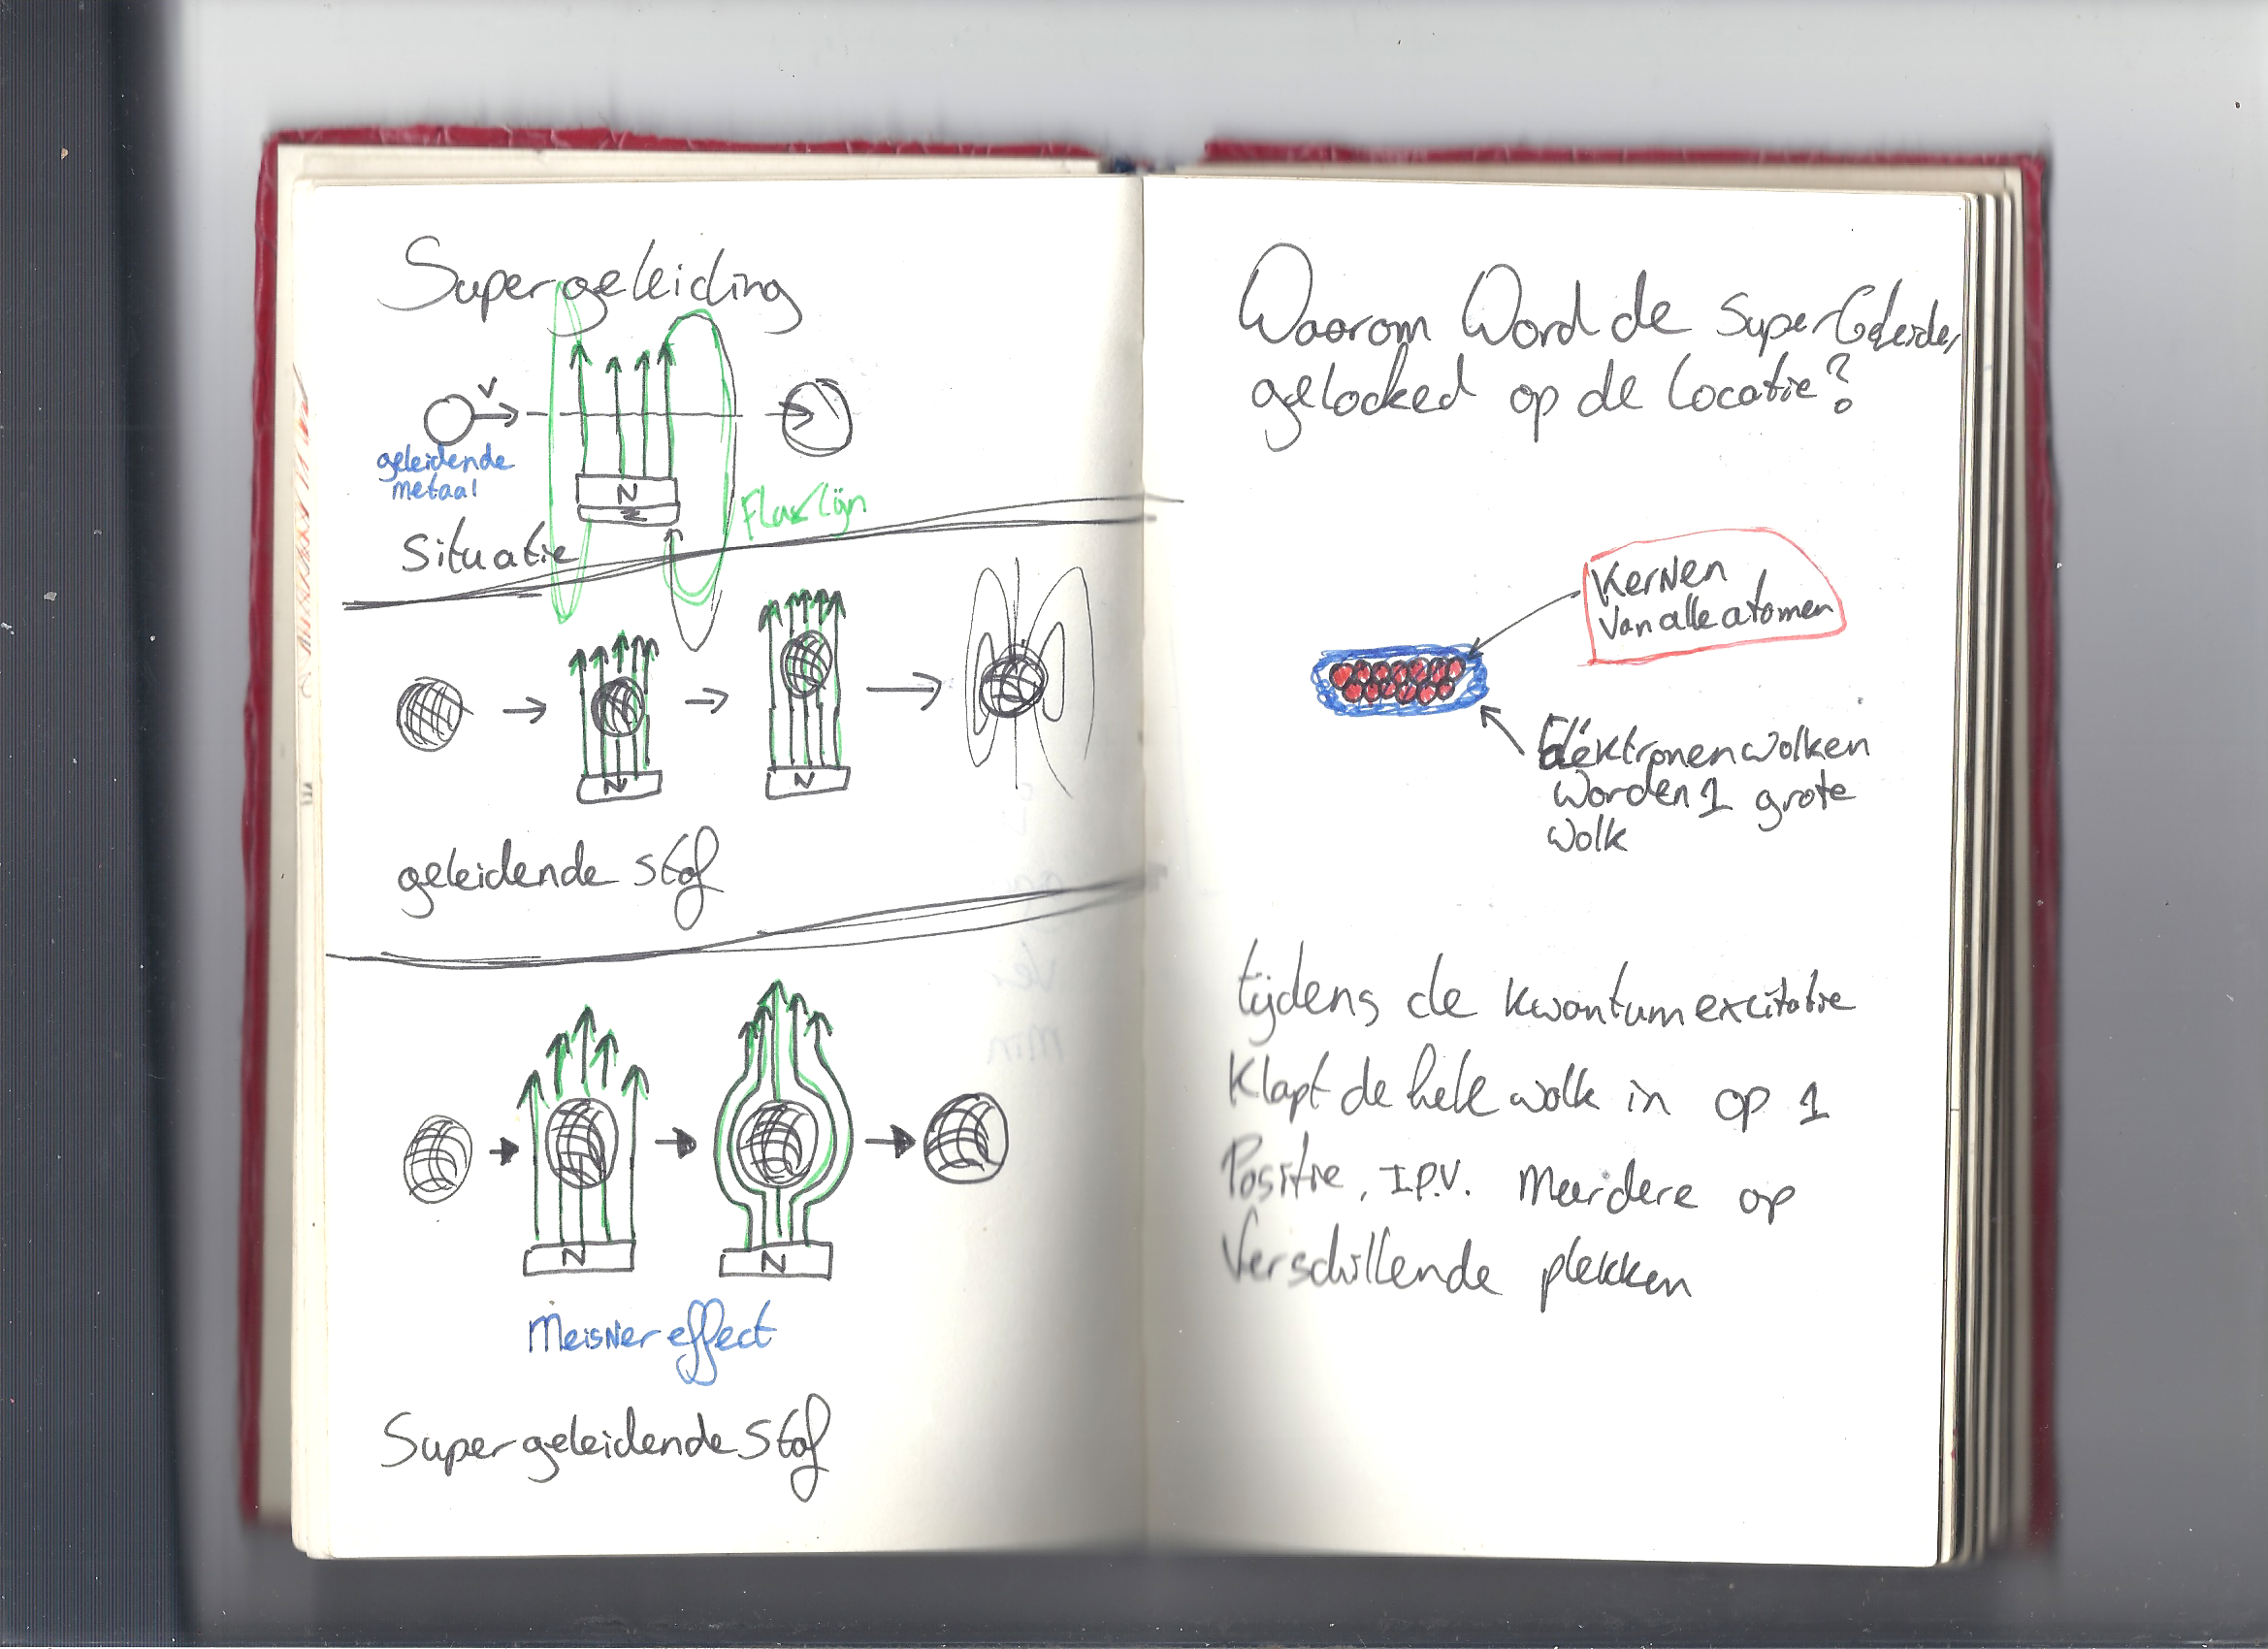 Supergeleiding
V
geleidende
metaal
N
Z
Fluxlijn
Situatie
N
N
geleidende stof
N
N
Meisner effect
Supergeleidende Stof
Waarom Word de SuperGeleider
gelocked op de locatie?
Kernen
Van alle atomen
Elektronenwolken
Worden 1 grote
Wolk
tijdens de kwantumexcitatie
Klapt de hele wolk in op 1
Positie, I.P.V. Meerdere op
Verschillende plekken